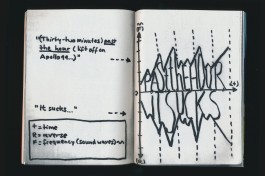 "(Thirty-two minutes) past
the hour (lift off on
Apollo 11...)"
"It sucks..."
t = time
R = reverse
F = frequency (sound waves)
PAST THE HOUR
IT SUCKS
(t)